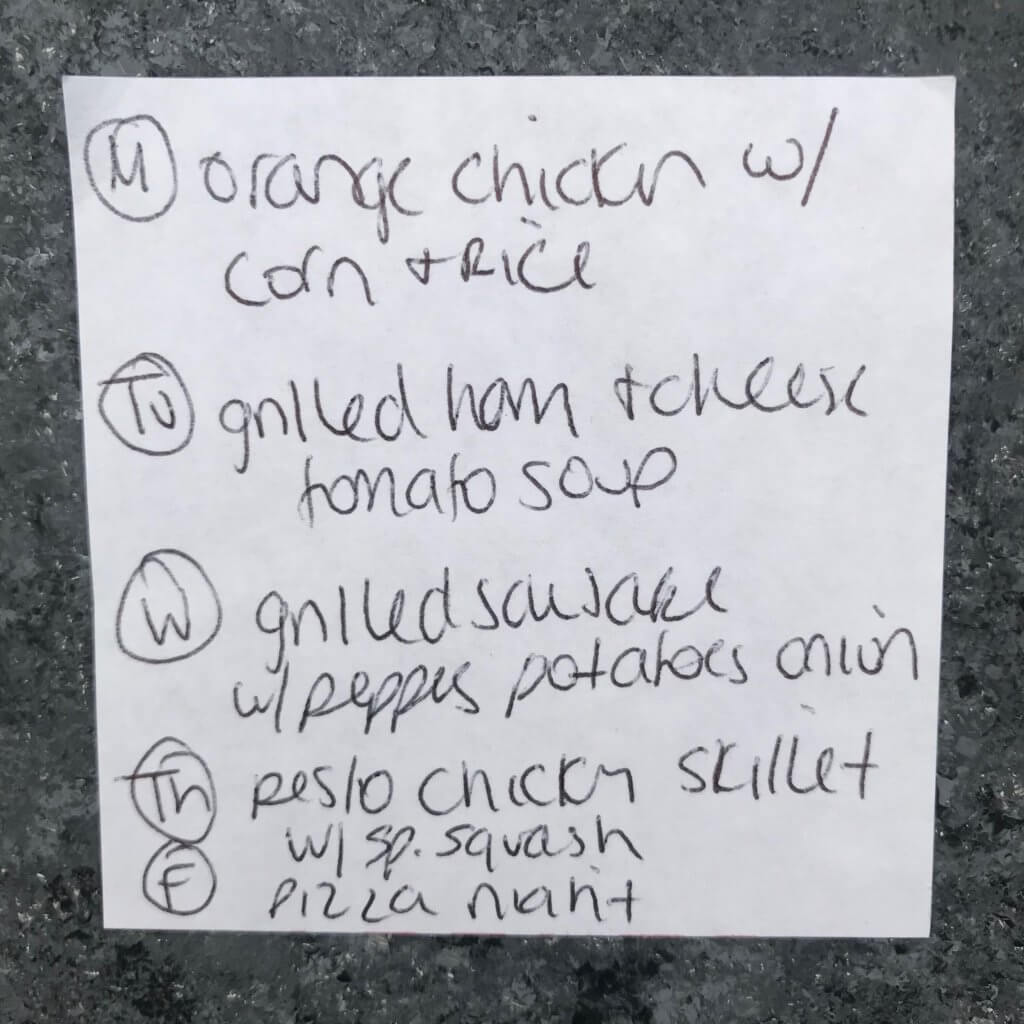 M orange chicken w/
corn + Rice
Tu grilled ham + cheese
tomato soup
W grilled sausage
w/ peppers potatoes onion
Th pesto chicken skillet
w/ sp. squash
F pizza night